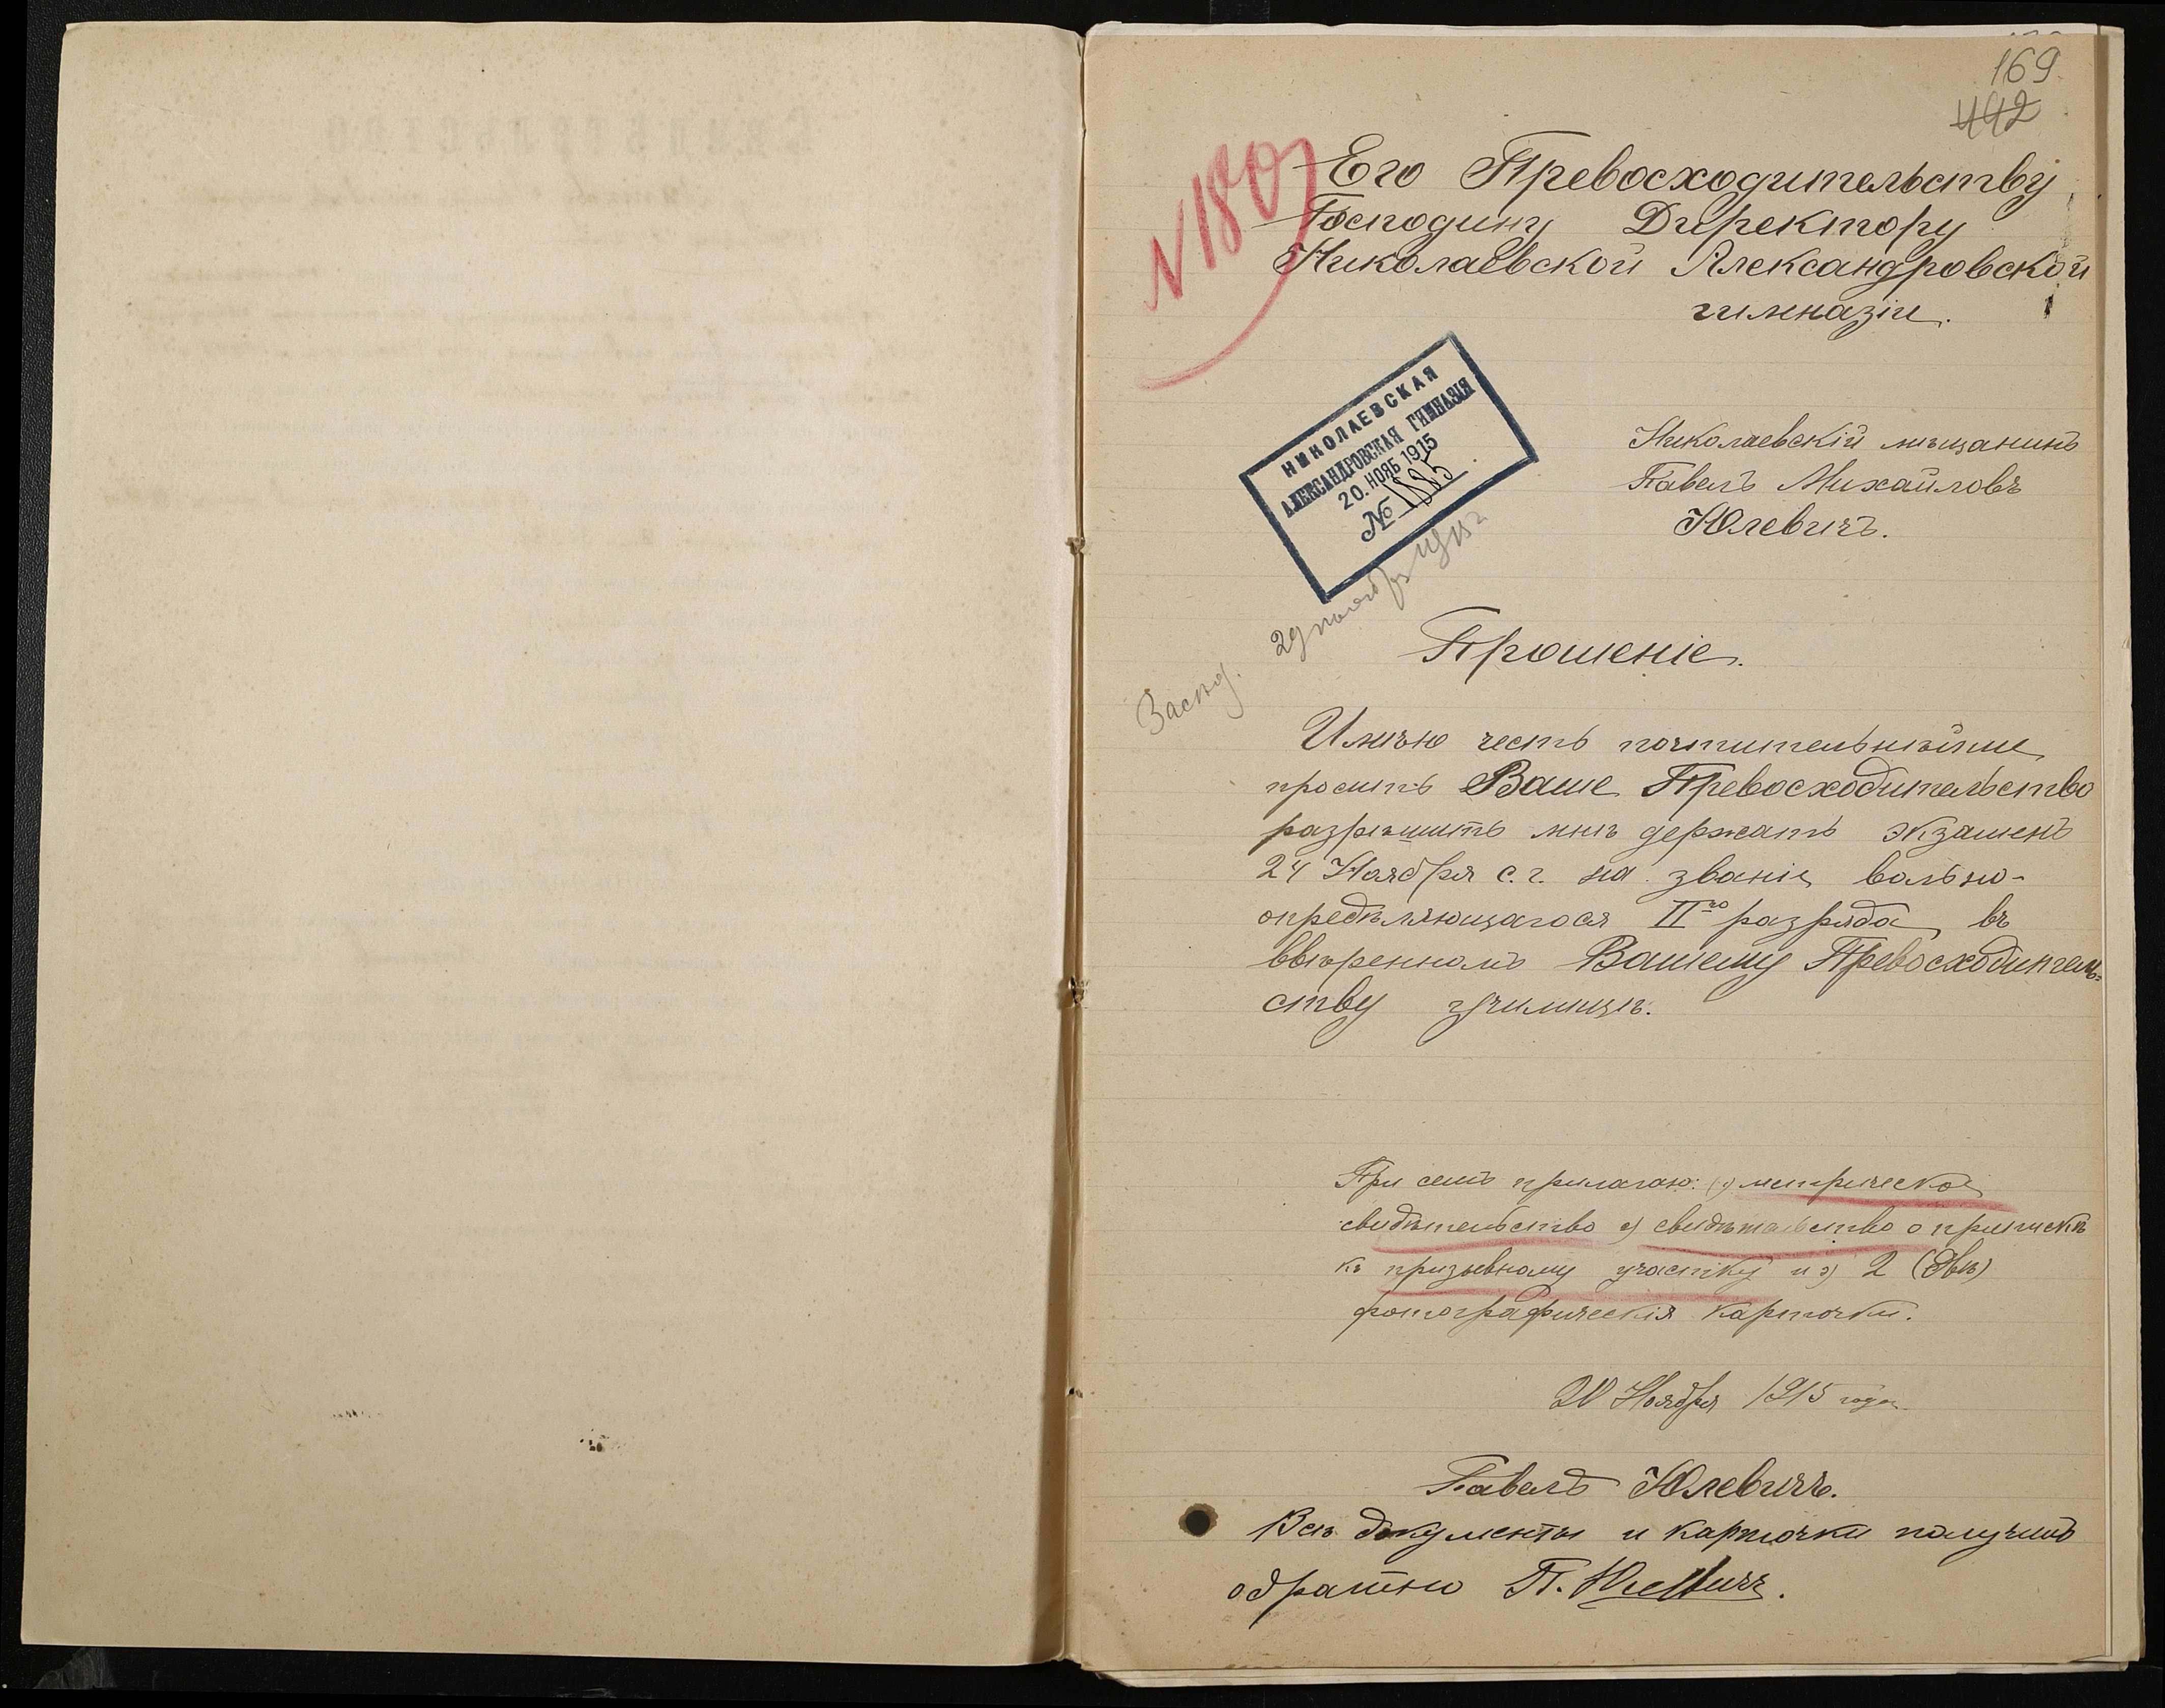 169
442
N 180
Его Превосходительству
Господину Директору
Николаевской Александровской
гимназіи.
НИКОЛАЕВСКАЯ
АЛЕКСАНДРОВСКАЯ ГИМНАЗІЯ
20. НОЯБ 1915
№ 1885
Николаевскій мѣщанинъ
Павелъ Михайловъ
Юлевичъ.
Засѣд. ноября
Прошеніе.
Имѣю честь почтительнѣйше
просить Ваше Превосходительство
разрѣшить мнѣ держать экзаменъ
24 Ноября с. г. на званіе вольно-
опредѣляющагося II го разряда въ
ввѣренномъ Вашему Превосходитель-
ству училищѣ.
При семъ прилагаю: 1) метрическое
свидѣтельство 2) свидѣтельство о припискѣ
къ призывному участку и 3) 2 (двѣ)
фотографическія карточки.
20 Ноября 1915 года.
Павелъ Юлевичъ.
Всѣ документы и карточки получилъ
обратно П. Юлевичъ.